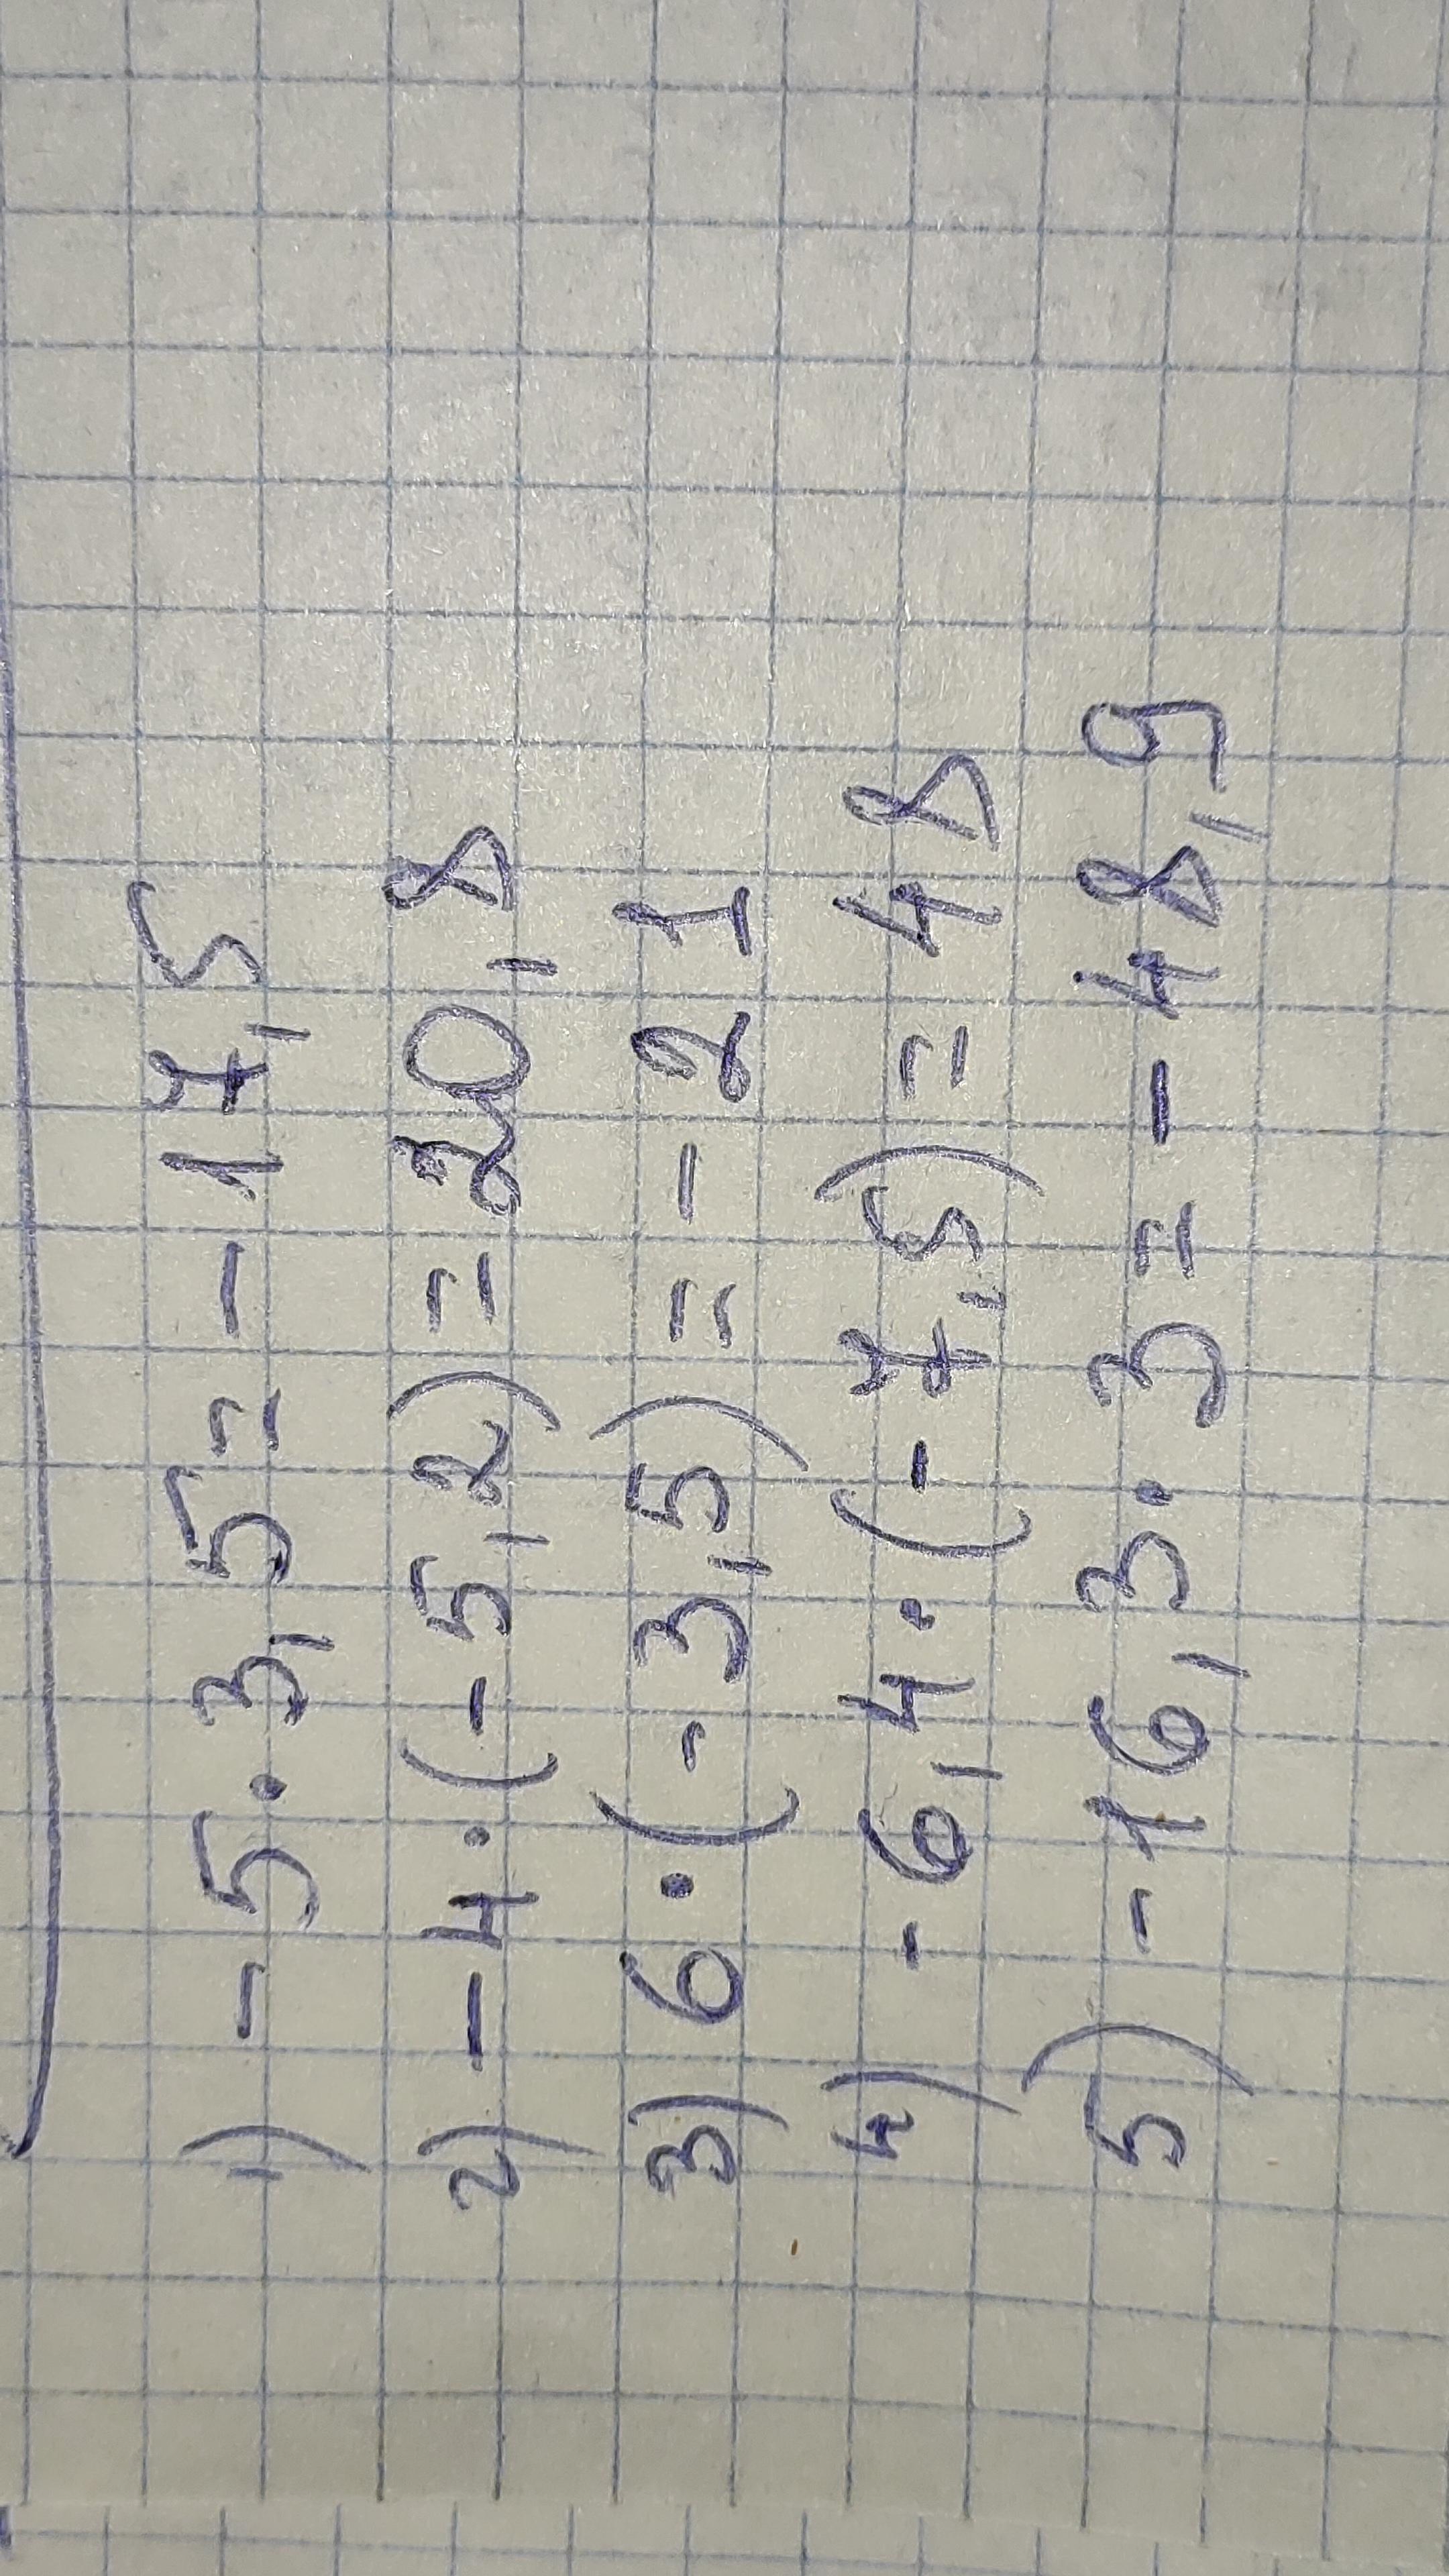 1) -5·3,5= -17,5
2) -4·(-5,2)=20,8
3) 6·(-3,5)= -21
4) -6,4·(-7,5)=48
5) -16,3·3= -48,9